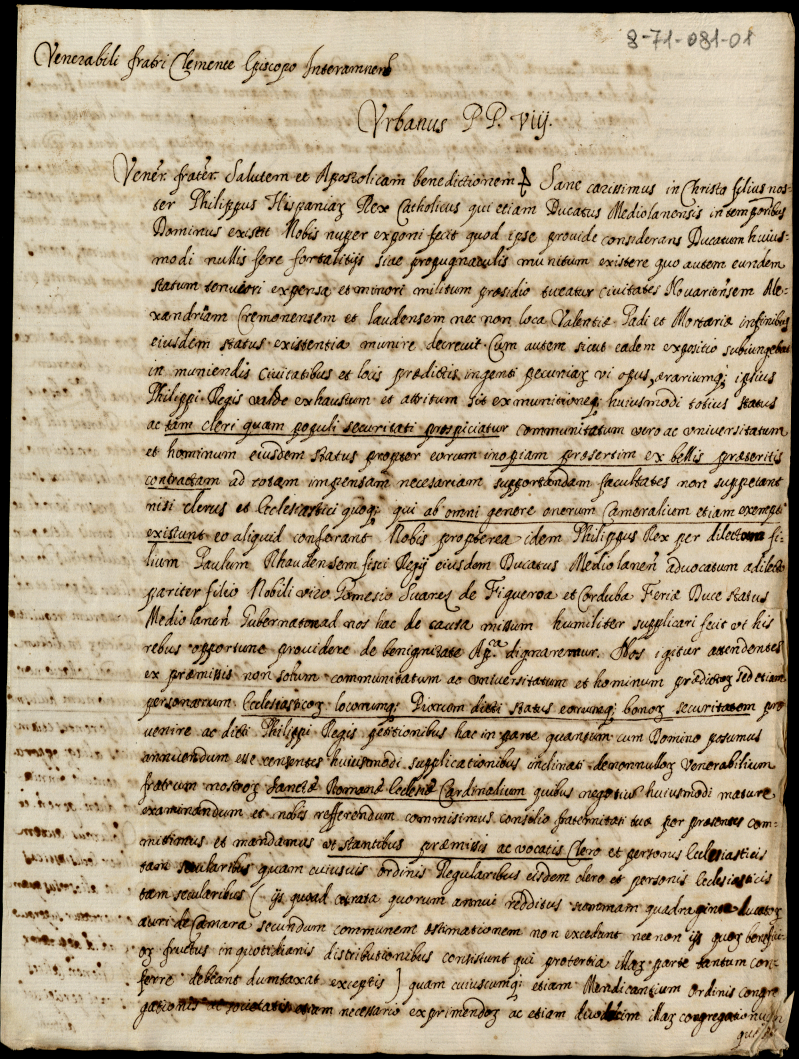 8-71-081-01
Venerabili fratri Clemente Episcopo Interamnens
Vrbanus P P. viij.
Vener. frater. Salutem et Apostolicam benedictionem Sane carissimus in Christo filius nos=
ter Philippus Hispaniaȝ Rex Catholicus qui etiam Ducatus Mediolanensis in temporibus
Dominus existit Nobis nuper exponi fecit quod ipse provide considerans Ducatum huius=
modi nullis fere fortalitijs siae propugnaculis munitum existere quo autem eundem
statum tenuiori expensa et minori militum presidio tueatur civitates Novariensem Ale=
xandriam Cremonensem et laudensem nec non loca Valentiæ Padi et Mortariæ in finibus
eiusdem status existentia munire decrevit. Cum autem sicut eadem expositio subiungebat
in muniendis civitatibus et locis prædictis ingenti pecuniaȝ vi opus, ærariumq; ipsius
Philippi Regis valde exhaustum et attritum sit ex munitioneq; huiusmodi totius status
ac tam cleri quam populi securitati prospiciatur communitatum vero ac universitatum
et hominum eiusdem status propter eorum inopiam præsertim ex bellis præteritis
contractam ad totam impensam necesariam supportandam facultates non suppetant
nisi clerus et Ecclesiastici quoq; qui ab omni genere onerum Cameralium etiam exempti
existunt eo aliquid conferant Nobis propterea idem Philippus Rex per dilectum fi-
lium Paulum Rhaudensem fisci Regij eiusdem Ducatus Mediolanen advocatum a dilecto
pariter filio Nobili viro Gomesio Suarez de Figueroa et Corduba Feriæ Duce status
Mediolanen Gubernatore ad nos hac de causa missum humiliter supplicari fecit ut his
rebus opportune providere de benignitate Ap.ca dignaremur. Nos igitur attendentes
ex præmissis non solum communitatum ac universitatum et hominum prædictoȝ sed etiam
personarum Ecclesiasticoȝ locorumq; Piorum dicti status eorumq; bonoȝ securitatem pro
venire ac dicti Philippi Regis petitionibus hac in parte quantum cum Domino posumus
annuendum esse censentes huiusmodi supplicationibus inclinati de nonnulloȝ Venerabilium
fratrum nostroȝ Sanctæ Romanæ Ecclesiæ Cardinalium quibus negotium huiusmodi mature
examinandum et nobis refferendum commisimus consilio fraternitati tuæ per præsentes com=
mittimus et mandamus ut stantibus præmissis ac vocatis Clero et personis Ecclesiasticis
tam secularibus quam cuiusvis ordinis Regularibus eisdem clero et personis Ecclesiasticis
tam secularibus ( ijs quoad quorum annui redditus summam quadraginta ducatoȝ
auri de Camara secundum communem estimationem non excedunt nec non ijs quoȝ benefici-
oȝ fructus in quotidianis distributionibus consistunt qui pro tertia illaȝ parte tantum con-
ferre debeant dumtaxat exceptis ) quam cuiuscumq; etiam Mendicantium ordinis congre
gationis ac societatis etiam necessario exprimendoȝ ac etiam illaȝ congregationum